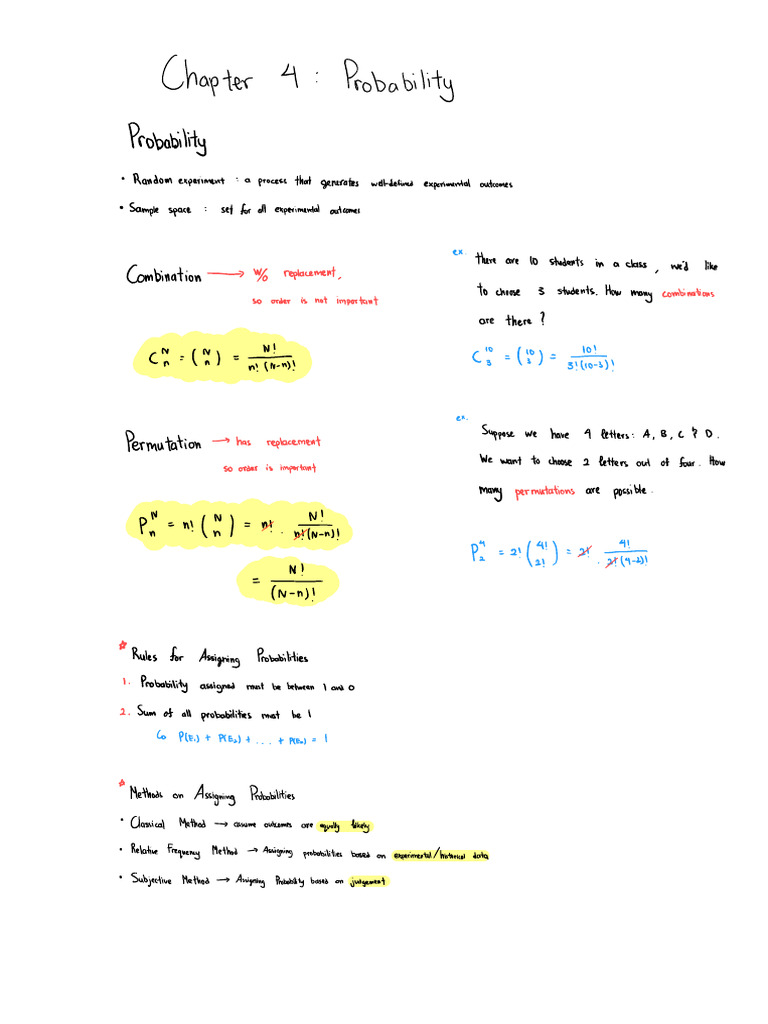 Chapter 4 : Probability
Probability
• Random experiment : a process that generates well-defined experimental outcomes
• Sample space : set for all experimental outcomes
Combination → w/o replacement,
so order is not important
C^N_n = (N n) = N! / n!(N-n)!
ex. There are 10 students in a class, we'd like
to choose 3 students. How many combinations
are there?
C^10_3 = (10 3) = 10! / 3!(10-3)!
Permutation → has replacement
so order is important
P^N_n = n! (N n) = n! . N! / n!(N-n)!
= N! / (N-n)!
ex.
Suppose we have 4 letters: A, B, C & D.
We want to choose 2 letters out of four. How
many permutations are possible.
P^4_2 = 2! (4! 2!) = 2! . 4! / 2!(4-2)!
* Rules for Assigning Probabilities
1. Probability assigned must be between 1 and 0
2. Sum of all probabilities must be 1
↳ P(E₁) + P(E₂) + ... + P(Eₙ) = 1
* Methods on Assigning Probabilities
• Classical Method → assume outcomes are equally likely
• Relative Frequency Method → Assigning probabilities based on experimental/historical data
• Subjective Method → Assigning Probability based on judgement